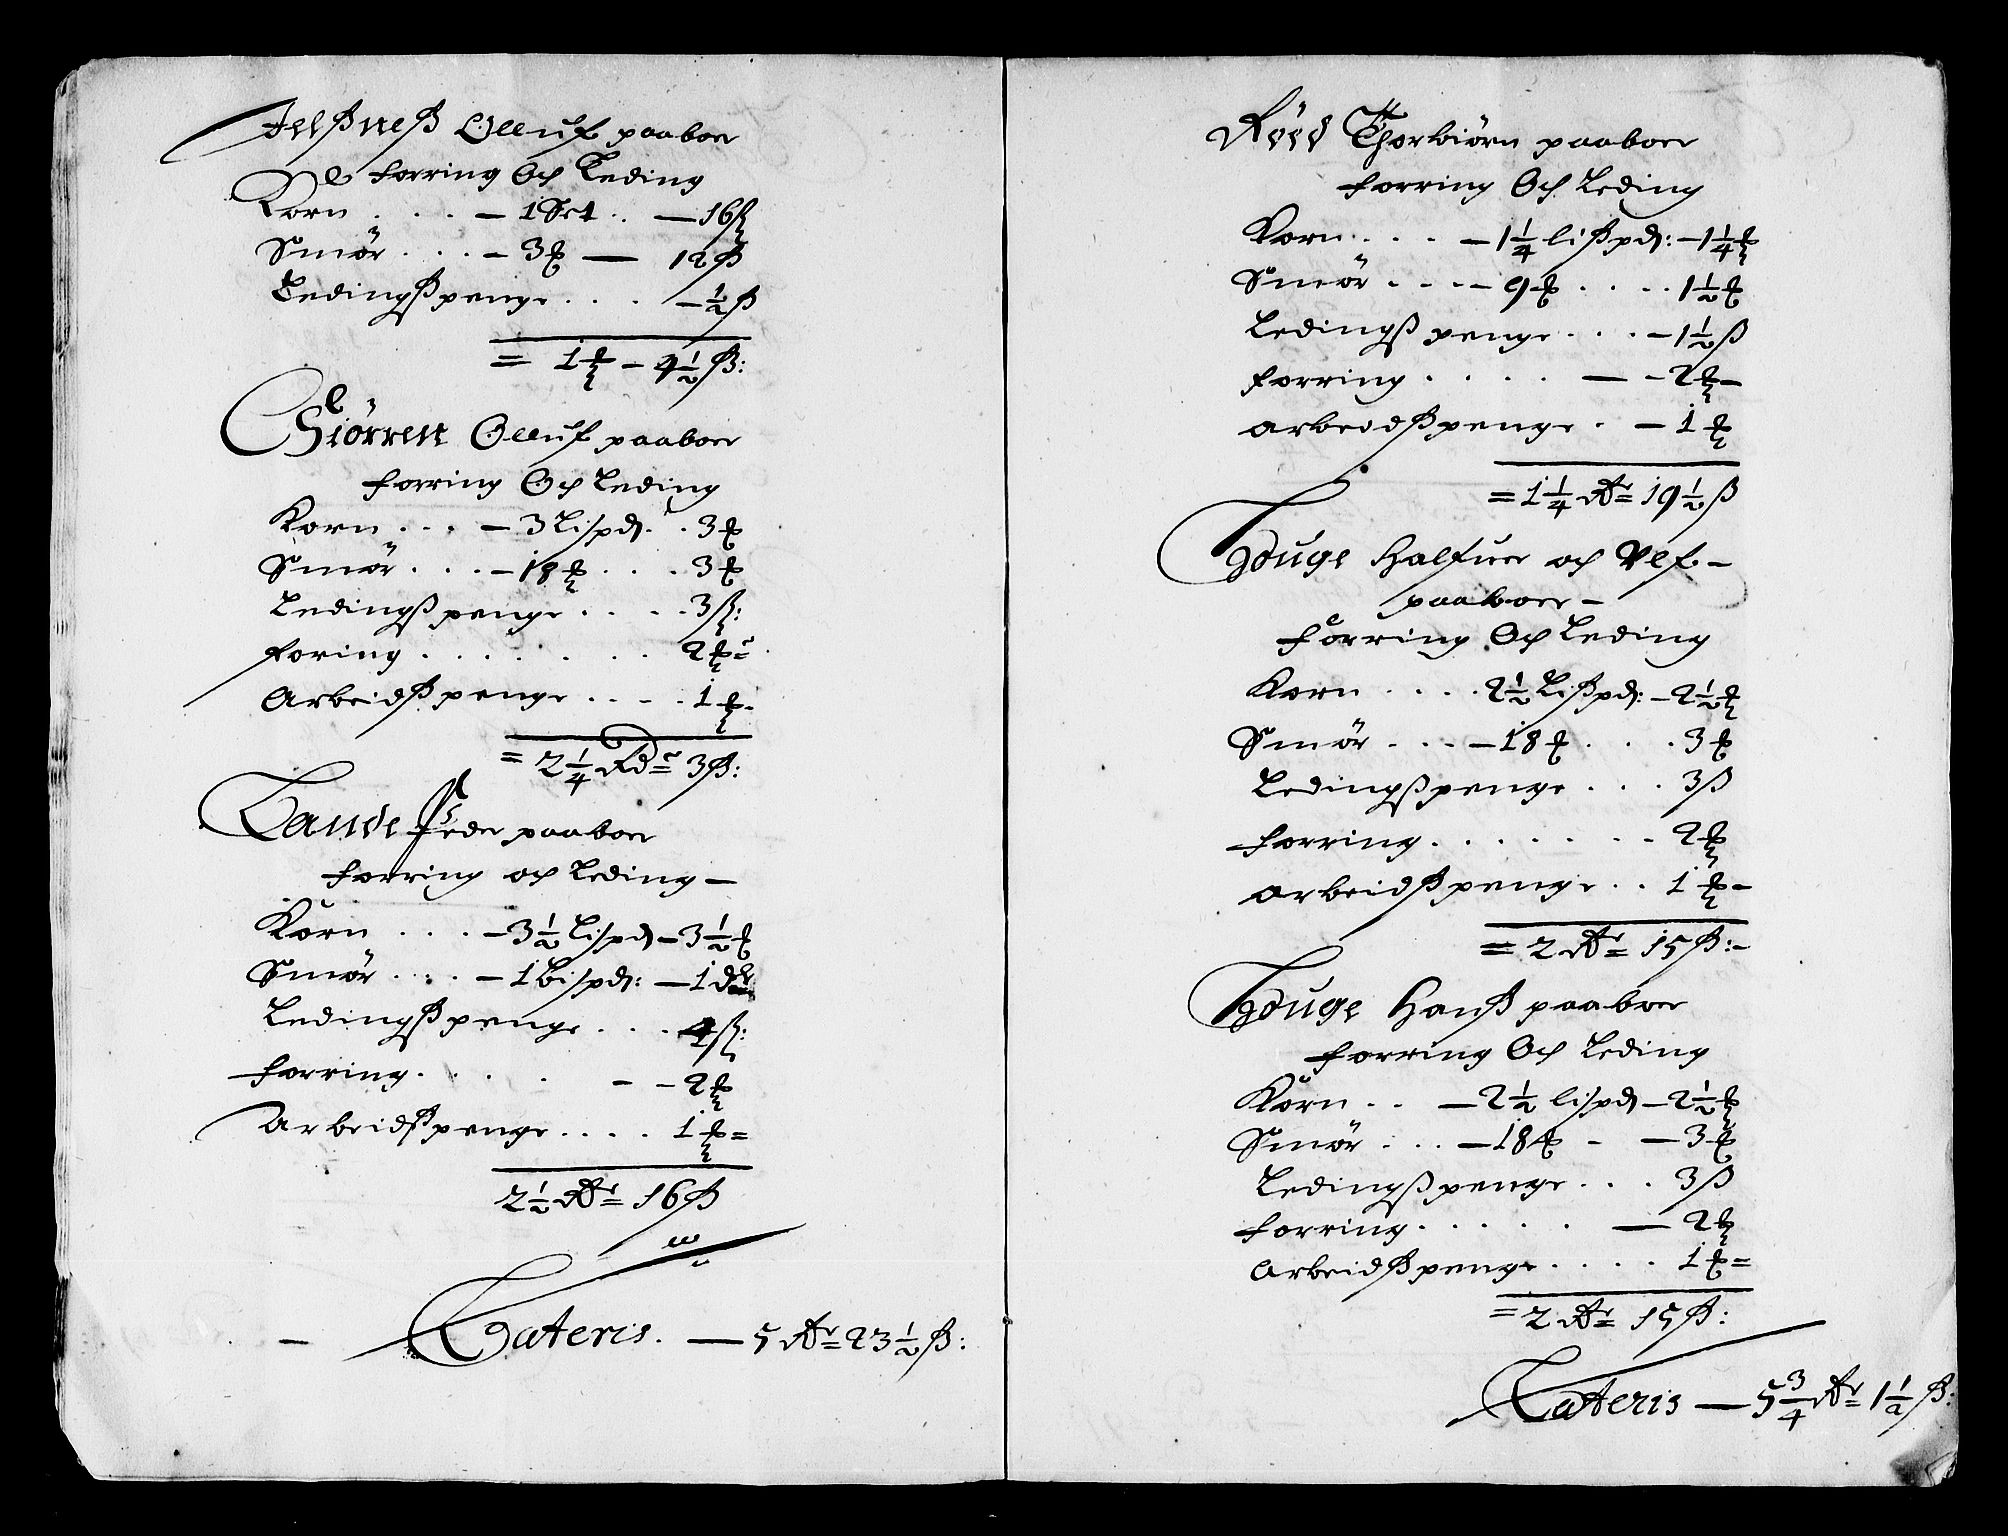 Jelßneß Olluf paaboer
forring Och Leding
Korn . . . . – 1 Set . . – 16 ß
Smör . . . – 3 ℔ — 12 ß
Ledingßpenge . . . – ½ ß
= 1 ℔ – 4½ ß:
Giörren Olluf paaboer
forring Och Leding
Korn . . . – 3 Lispd . . 3 ℔
Smör . . . – 18 ℔ . . . 3 ℔
Ledingßpenge . . . . 3 ß:
foring . . . . . . . 2 ℔ =
Arbeidßpenge . . . . 1 ℔ -
= 2¼ Rdr 3 ß:
Lande Peder paaboer
forring och Leding –
Korn . . . . – 3½ Lispd – 3½ ℔
Smör . . . . – 1 Bispd: – 1 dlr
Ledingßpenge . . . . 4 ß:
forring . . . . . – – 2 ℔
Arbeidßpenge . . . . 1 ℔ =
2½ Rr 16 ß
Lateris. — 5 Rr 23½ ß:
Rööd Thorbiörn paaboer
forring Och Leding
Korn . . . . – 1¼ lißpd: – 1¼ ℔
Smör . . . – 9 ℔ . . . . 1½ ℔
Ledingßpenge . . . – 1½ ß
forring . . . . — – 2 ℔ –
arbeidßpenge . – 1 ℔
= 1¼ Rr 19½ ß
Houge Halfuer och Vlf –
paaboer –
forring Och Leding
Korn . . . . 2½ Lißpd: – 2½ ℔
Smör . . . – 18 ℔ . . . . 3 ℔
Ledingßpenge . . . . 3 ß
forring . . . . . . . – 2 ℔
arbeidßpenge . . 1 ℔ –
= 2 Rr 15 ß: –
Houge Hanß paaboer
forring Och Leding
Korn . . – 2½ lispd – 2½ ℔
Smör . . . – 18 ℔ – – 3 ℔
Ledingßpenge . . . . 3 ß
forring . . . . . . — 2 ℔
arbeidßpenge . . . . . 1 ℔ =
= 2 Rr 15 ß:
Lateris — 5¾ Rr 1½ ß: